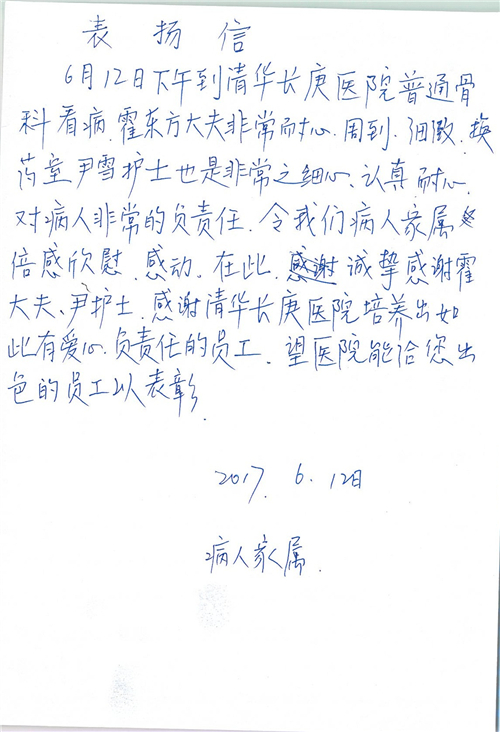 表扬信
6月12日下午到清华长庚医院普通骨
科看病.霍东方大夫非常耐心.周到.细致.换
药室尹雪护士也是非常之细心.认真耐心.
对病人非常的负责任.令我们病人家属
倍感欣慰.感动.在此.感谢诚挚感谢霍
大夫、尹护士.感谢清华长庚医院培养出如
此有爱心.负责任的员工.望医院能给您出
色的员工以表彰.
2017.6.12日
病人家属.